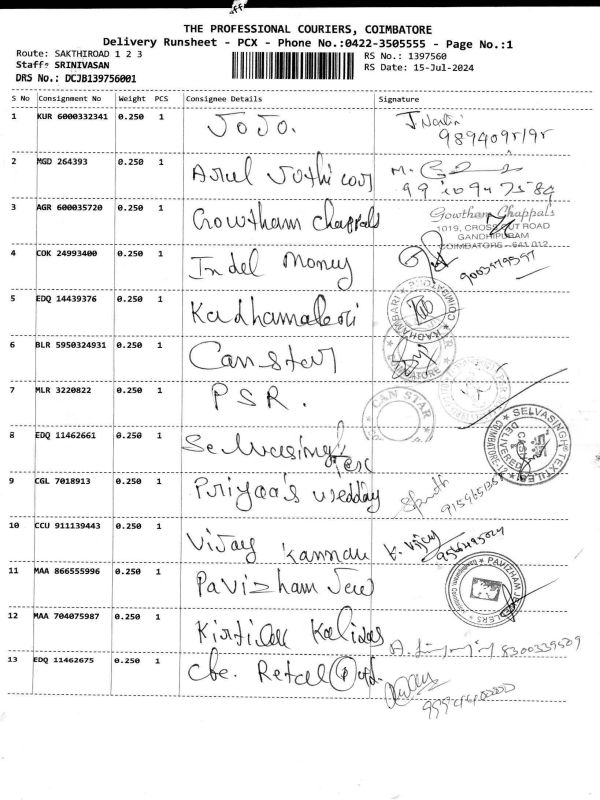 THE PROFESSIONAL COURIERS, COIMBATORE
Delivery Runsheet - PCX - Phone No.:0422-3505555 - Page No.:1
Route: SAKTHIROAD 1 2 3
RS No.: 1397560
Staff: SRINIVASAN
RS Date: 15-Jul-2024
DRS No.: DCJB139756001
S No Consignment No Weight PCS Consignee Details Signature
1 KUR 6000332341 0.250 1 JoJo.
2 MGD 264393 0.250 1 Arul Jothi
3 AGR 600035720 0.250 1 Gowtham Chappals
Gowtham Chappals
1019, CROSS CUT ROAD
GANDHIPURAM
COIMBATORE - 641 012
4 COK 24993400 0.250 1 Indel Money
5 EDQ 14439376 0.250 1
6 BLR 5950324931 0.250 1 Can Star
7 MLR 3220822 0.250 1 PSR.
CAN STAR
8 EDQ 11462661 0.250 1 Selvasingh Tex
SELVASINGH TEXTILE
DELIVERED
9 CGL 7018913 0.250 1 Priyaa's wedday
10 CCU 911139443 0.250 1 Vijay Kannan
K. Vijay
11 MAA 866555996 0.250 1 Pavizham Jew
PAVIZHAM JEWELLERS
12 MAA 704075987 0.250 1 Kirtilal Kalidas
8300339509
13 EDQ 11462675 0.250 1 Cbe. Retail